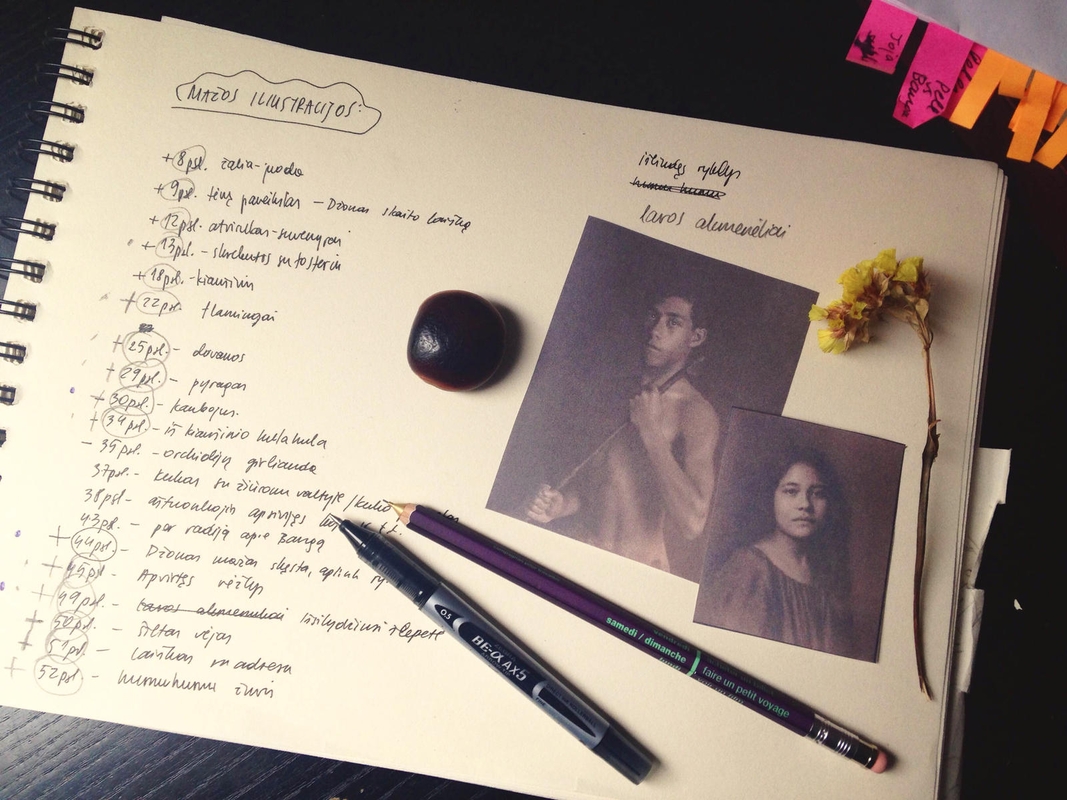 MAŽOS ILIUSTRACIJOS:
+ 8psl. žalia-juoda
+ 9psl. tėvų paveikslas – Džonas skaito laišką
+ 12psl. atvirukas-suvenyras
+ 13psl. – su tosteriu
+ 18psl. - kiaušinis
+ 22psl. flamingai
+ 25psl. – dovanos
+ 29psl. – pyragas
+ 30psl. – kaubojus.
+ 34psl. – iš kiaušinio hula hula
– 35psl. – orchidėjų girlianda
37psl. – su žiūronu valtyje /
38psl – aštuonkojis apsivijęs
43psl. – per radiją apie Bangą
+ 44psl. – Džonas mažas skęsta, aplink
+ 45psl. Apvirtęs vėžlys
+ 49psl. – lavos akmenukai išsilydžiusi šlepetė
+ 50psl. – šiltas vėjas
+ 51psl. – laiškas su adresu
+ 52psl. – humuhumu žuvis
išlindęs ryklys
humu humu
lavos akmenėliai
0.5 BE-α AX5
samedi / dimanche faire un petit voyage